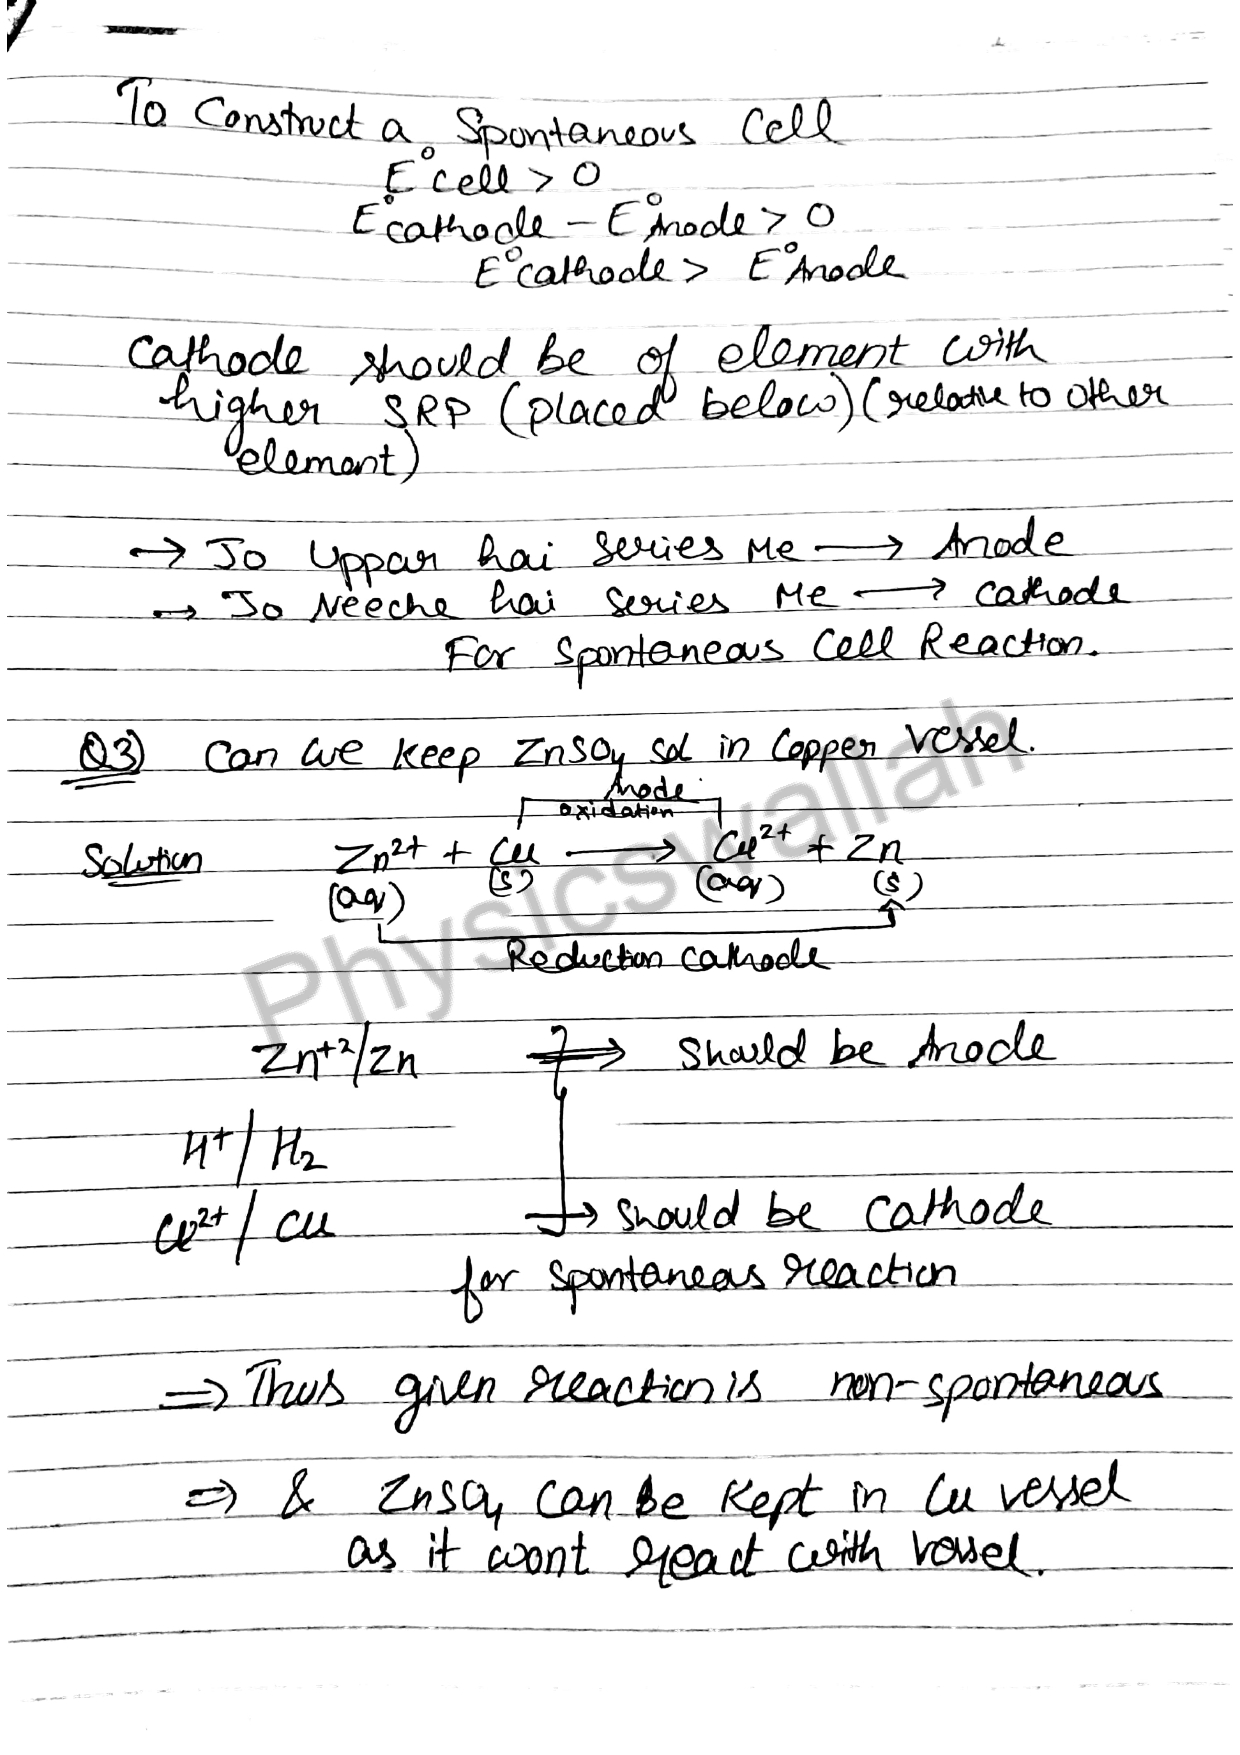 To Construct a Spontaneous Cell
E°cell > 0
E°cathode – E°Anode > 0
E°cathode > E°Anode
Cathode should be of element with
higher SRP (placed below) (relative to other
element)
→ Jo Uppar hai series Me → Anode
→ Jo Neeche hai series Me → cathode
For Spontaneous Cell Reaction.
Q3) Can we keep ZnSO4 sol in Copper vessel.
Anode
oxidation
Solution Zn2+ + Cu → Cu2+ + Zn
(aq) (s) (aq) (s)
Reduction cathode
Zn+2/Zn ⇒ should be Anode
H+/H2
Cu2+/Cu → should be Cathode
for spontaneas reaction
⇒ Thus given reaction is non-spontaneous
⇒ & ZnSO4 can be kept in Cu vessel
as it wont react with vessel.
Physicswallah